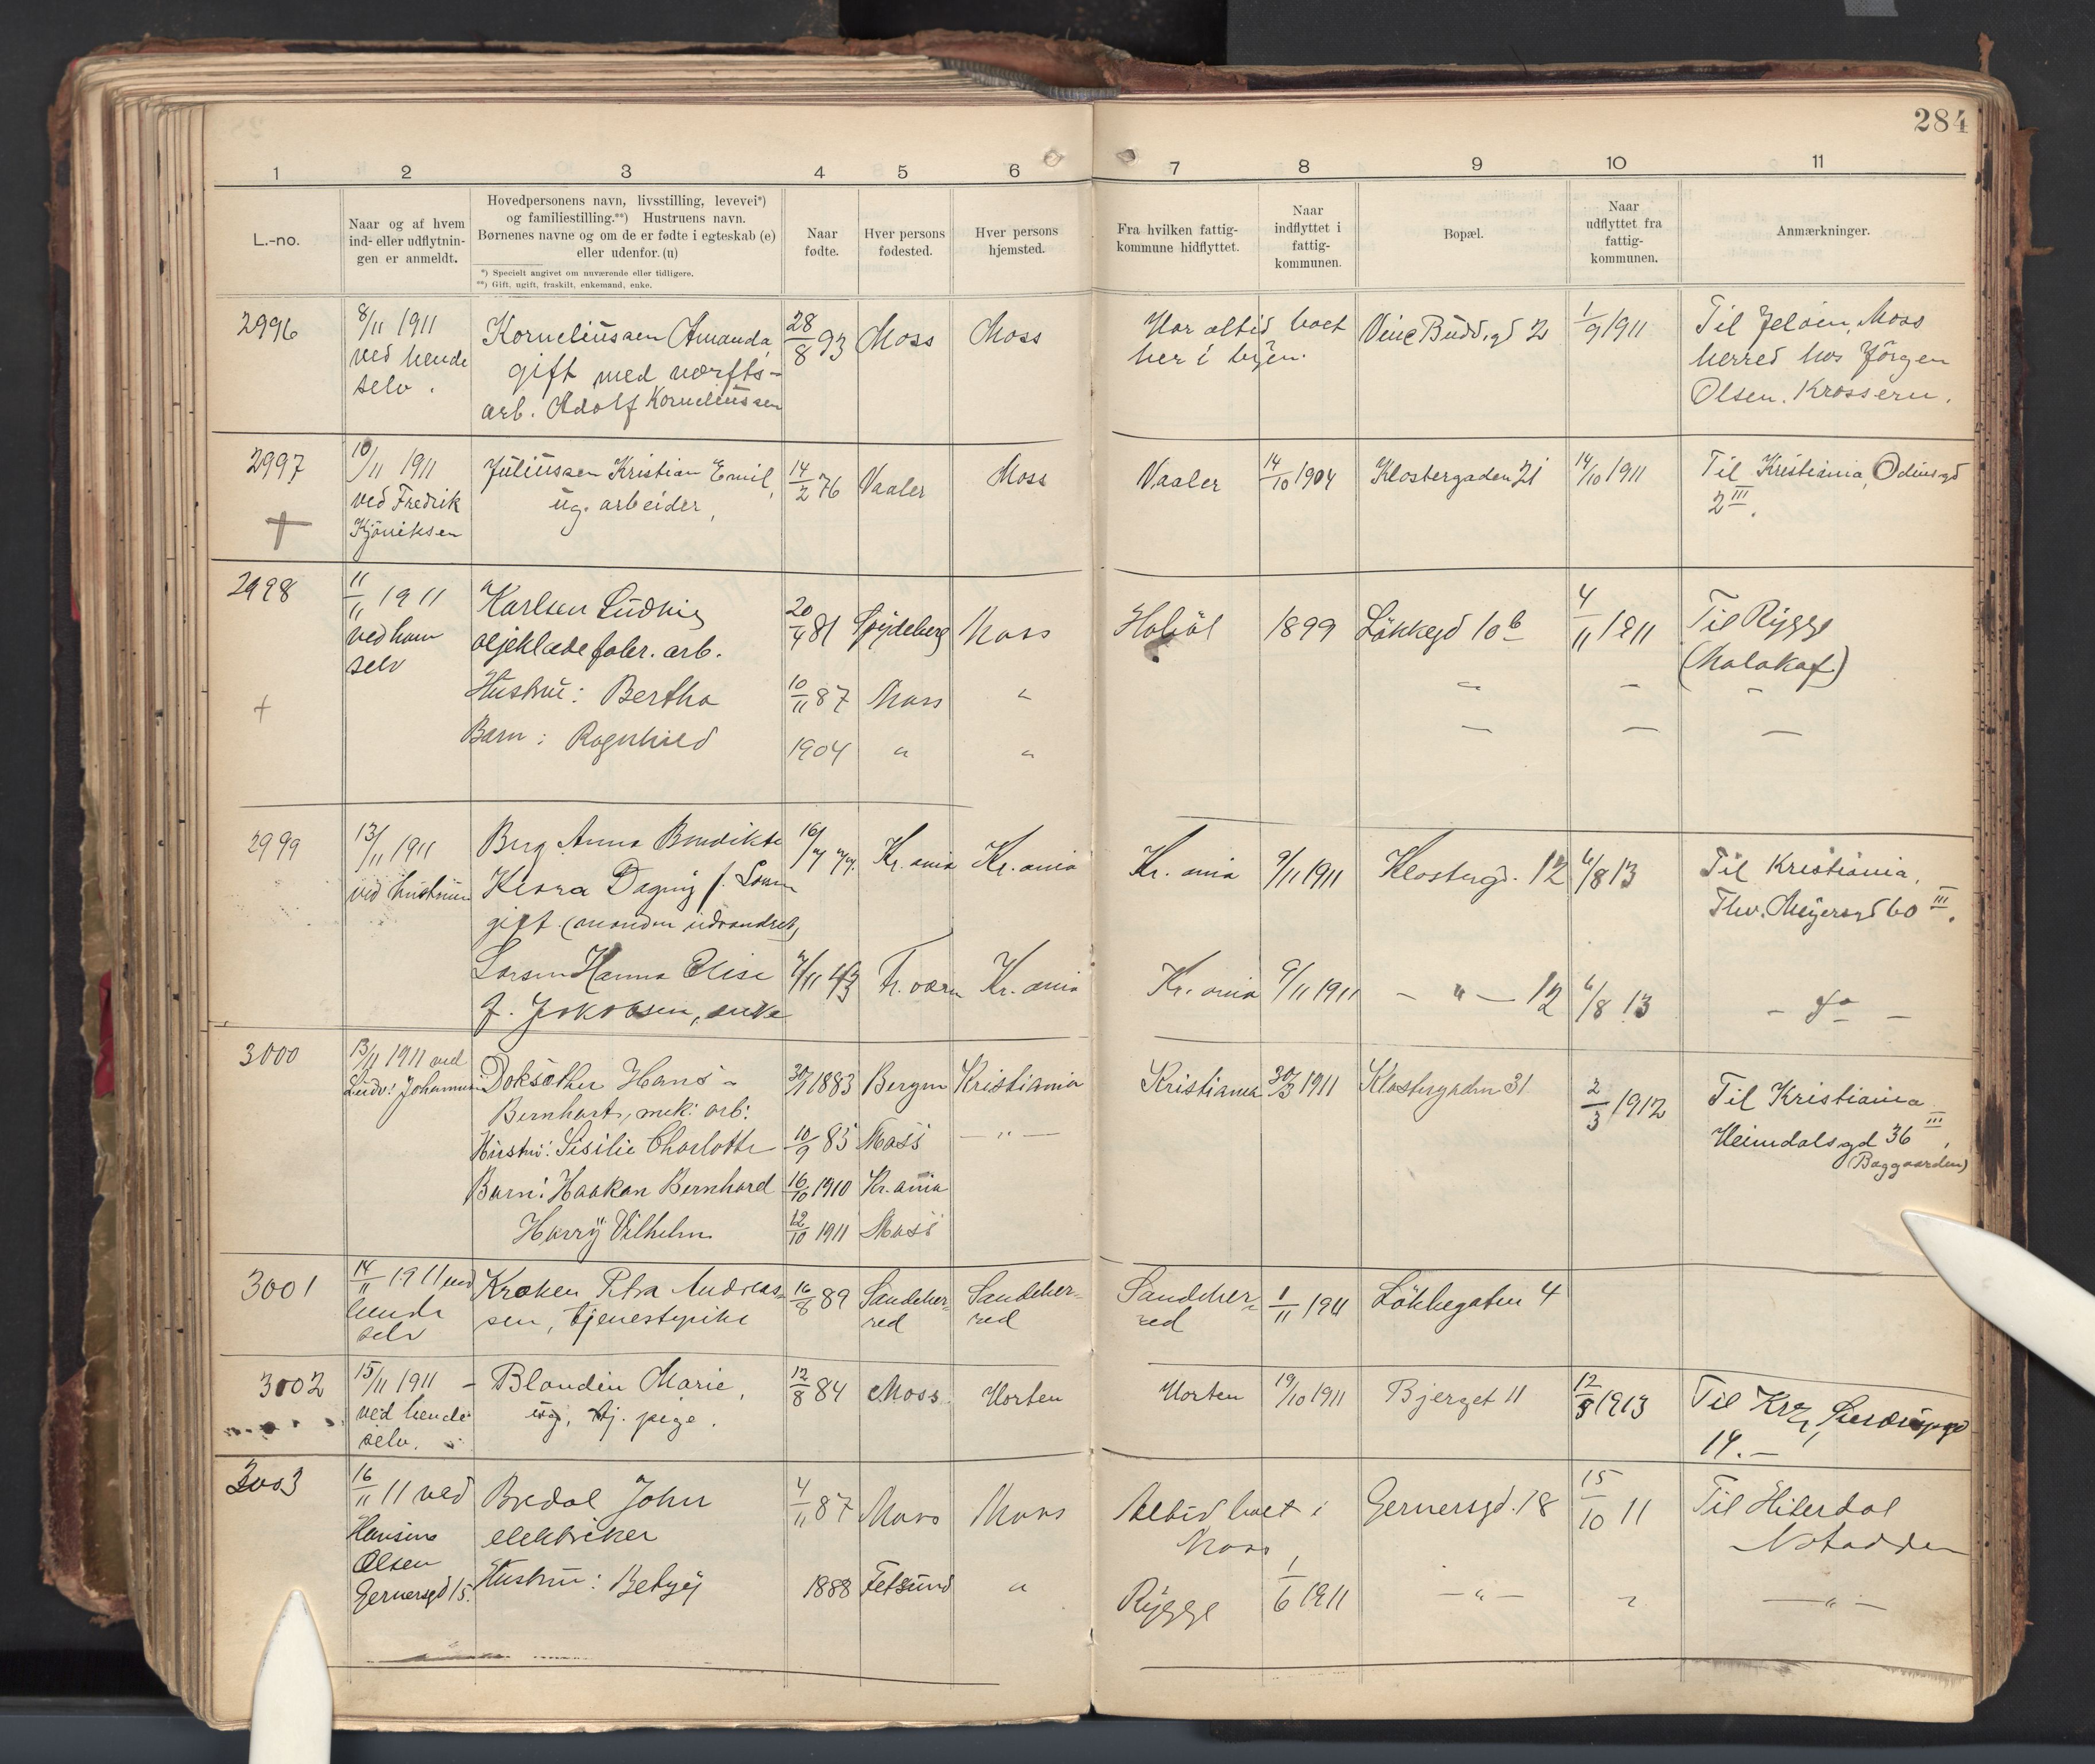 284
1 2 3 4 5 6 7 8 9 10 11
L.-no.
Naar og af hvem
ind- eller udflytnin-
gen er anmeldt.
Hovedpersonens navn, livsstilling, levevei*)
og familiestilling.**) Hustruens navn.
Børnenes navne og om de er fødte i egteskab (e)
eller udenfor. (u)
*) Specielt angivet om nuværende eller tidligere.
**) Gift, ugift, fraskilt, enkemand, enke.
Naar
fødte.
Hver persons
fødested.
Hver persons
hjemsted.
Fra hvilken fattig-
kommune hidflyttet.
Naar
indflyttet i
fattig-
kommunen.
Bopæl.
Naar
udflyttet fra
fattig-
kommunen.
Anmærkninger.
2996
8/11 1911
ved hende
selv.
Korneliussen Amanda,
gift med verfts-
arb. Adolf Korneliussen
28/8 93
Moss
Moss
Har altid boet
her i byen.
1/9 1911
Til Jeløen, Moss
herred hos Jörgen
Olsen. Krossern.
2997
10/11 1911
ved Fredrik
Kjöniksen
Juliussen Kristian Emil,
ug. arbeider,
14/2 76
Vaaler
Moss
Vaaler
14/10 1904
Klostergaden 21
14/10 1911
Til Kristiania, Odinsgd
2 III.
2998
11/11 1911
ved ham
selv
Karlsen Ludvig
oljeklædefabr. arb.
20/4 81
Spydeberg
Moss
Hobøl
1899
Løkkegd 10 b
4/11 1911
Til Rygge
(Malakof)
Hustru: Bertha
10/11 87
Moss
"
Barn: Ragnhild
1904
"
"
2999
13/11 1911
ved hustruen
Berg Anna Bendikte
Kiara Dagny f. Larsen
gift (manden udvandret)
16/7 77.
Kr.ania
Kr.ania
Kr.ania
9/11 1911
Klostergd. 12
6/8 13
Til Kristiania,
Thv. Meyersgd 60 III.
Larsen Hanna Elise
f. Jakobsen, enke
7/11 43
Fr.værn
Kr.ania
Kr.ania
9/11 1911
- " - 12
6/8 13
- do -
3000
13/11 1911 ved
Ludv: Johannesen
Doksæther Hans -
Bernhart, mek: arb:
30/1 1883
Bergen
Kristiania
Kristiania
30/3 1911
Klostergaden 31
2/3 1912
Til Kristiania
Heimdalsgd 36 III,
(Baggaarden)
Hustru: Sisilie Charlotte
10/9 85
Moss
- " -
Barn: Haakon Bernhard
16/10 1910
Kr.ania
Harry Vilhelm
12/10 1911
Moss
3001
14/11 1911 ved
hende
selv
Kroken Petra Andreas-
sen, tjenestepike
16/8 89
Sandeher-
red
Sandeher-
red
Sandeher-
red
1/11 1911
Løkkegaten 4
3002
15/11 1911
ved hende
selv.
Blandin Marie,
ug, tj. pige.
12/8 84
Moss
Horten
Horten
19/10 1911
Bjerget 11
12/3 1913
Til Kra,
14. -
3003
16/11 11 ved
Hansine
Olsen
Gernersgd 15.
Bredal John
elektriker
4/11 87
Moss
Moss
Altid boet i
Moss
Gernersgd. 18
15/10 11
Til Hiterdal
Notodden
Hustru: Betzy
1888
Fetsund
"
Rygge
1/6 1911
- " -
"
- " -